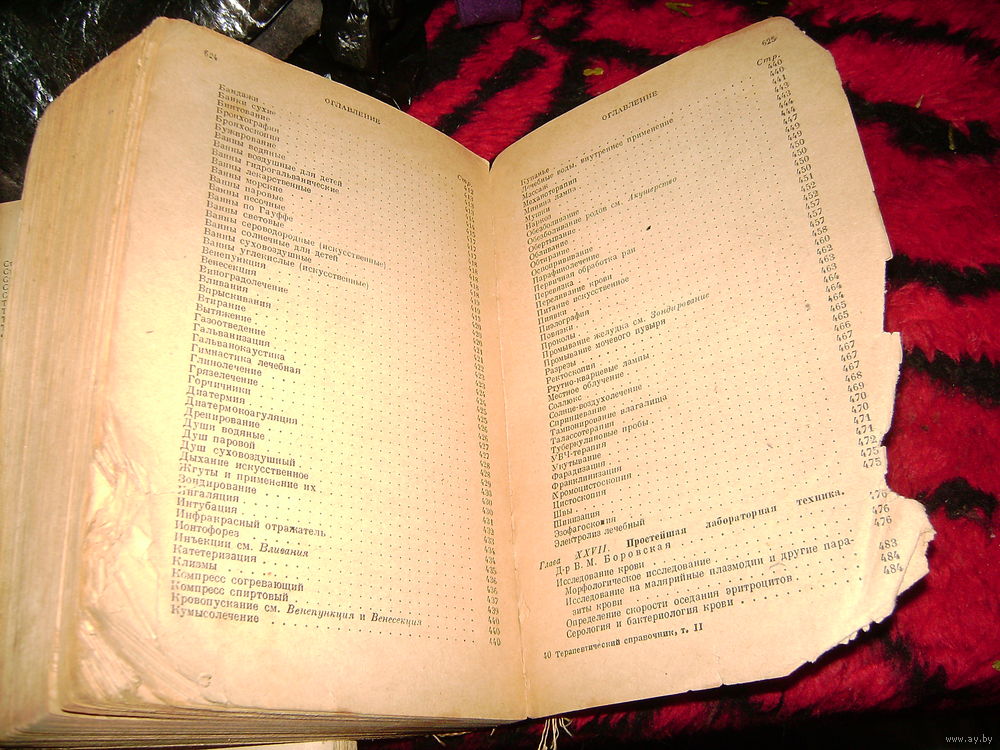 624
ОГЛАВЛЕНИЕ
Стр.
Бандажи
Банки сухие
Бинтование
Бронхография
Бронхоскопия
Бужирование
Ванны водяные
Ванны воздушные для детей
Ванны гидрогальванические
Ванны лекарственные
Ванны морские
Ванны паровые
Ванны песочные
Ванны по Гауффе
Ванны световые
Ванны сероводородные (искусственные)
Ванны солнечные для детей
Ванны суховоздушные
Ванны углекислые (искусственные)
Венепункция
Венесекция
Виноградолечение
Вливания
Впрыскивания
Втирание
Вытяжение
Газоотведение
Гальванизация
Гальванокаустика
Гимнастика лечебная
Глинолечение
Грязелечение
Горчичники
Диатермия
Диатермокоагуляция
Дренирование
Души водяные
Душ паровой
Душ суховоздушный
Дыхание искусственное
Жгуты и применение их
Зондирование
Ингаляция
Интубация
Инфракрасный отражатель
Ионтофорез
Инъекции см. Вливания
Катетеризация
Клизмы
Компресс согревающий
Компресс спиртовый
Кровопускание см. Венепункция и Венесекция
Кумысолечение 440
625
ОГЛАВЛЕНИЕ
Стр.
Купанье 440
Лечебные воды, внутреннее применение 440
Массаж 441
Механотерапия 443
Минина лампа 443
Мушки 444
Наркоз 444
Обезболивание 447
Обезболивание родов см. Акушерство
Обертывание
Обливание
Обтирание
Оспопрививание
Парафинолечение
Первичная обработка ран
Перевязка
Переливание крови
Питание искусственное
Пиявки
Пиэлография
Повязки
Проколы
Промывание желудка см. Зондирование
Промывание мочевого пузыря
Разрезы
Ректоскопия
Ртутно-кварцевые лампы
Местное облучение
Соллюкс
Солнце-воздухолечение
Спринцевание
Тампонирование влагалища
Талассотерапия
Туберкулиновые пробы
УВЧ-терапия
Укутывание
Фарадизация
Франклинизация
Хромоцистоскопия
Цистоскопия
Швы
Шинизация
Эзофагоскопия
Электролиз лечебный
Глава XXVII. Простейшая лабораторная техника.
Д-р В. М. Боровская 476
Исследование крови 476
Морфологическое исследование 476
Исследование на малярийные плазмодии и другие пара-
зиты крови 483
Определение скорости оседания эритроцитов 484
Серология и бактериология крови 484
40 Терапевтический справочник, т. II
www.ay.by